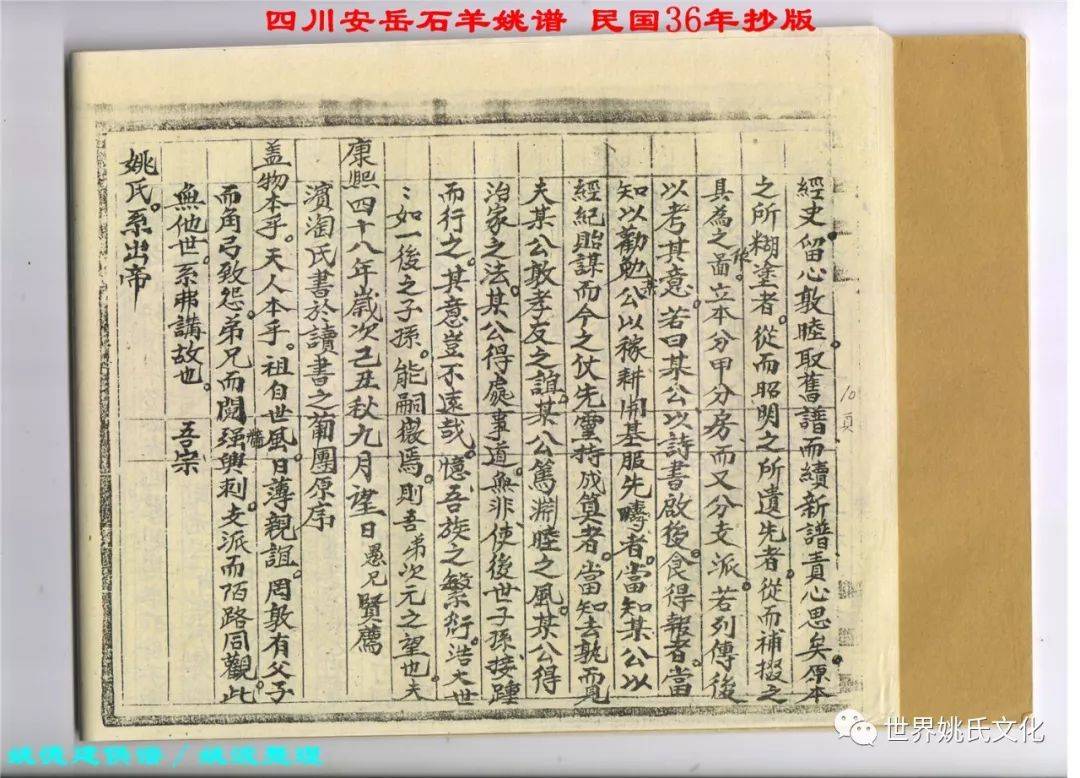 四川安岳石羊姚谱 民国36年抄版
經史。留心敦睦。取舊譜而續新譜責心思矣。原本
之所糊塗者。從而昭明之所遺先者。從而補掇之
具為之圖。立本分甲分房而又分支派。若列傳後
以考其意。若曰某公以詩書啟後。食得報者。當
知以勸勉公以稼耕開基服先疇者。當知某公以
經紀貽謀而今之仗先靈持成算者。當知去孰而覓
夫某公敦孝友之誼。某公篤淵睦之風。某公得
治家之法。某公得處事道。無非使後世子孫接踵
而行之。其意豈不遠哉。憶吾族之繁衍。浩大世
〻如一後之子孫。能嗣徽焉。則吾弟次元之望也。夫
康熙四十八年歲次己丑秋九月望日 愚兄賢薦
濱淘氏書於讀書之蒲團原序
盖物本乎。天人本乎。祖自世風。日薄親誼。罔敦有父子
而角弓致怨。弟兄而鬩强興刺。支派而陌路同觀此
無他世。系弗講故也。 吾宗
姚氏。系出帝
10頁
世界姚氏文化